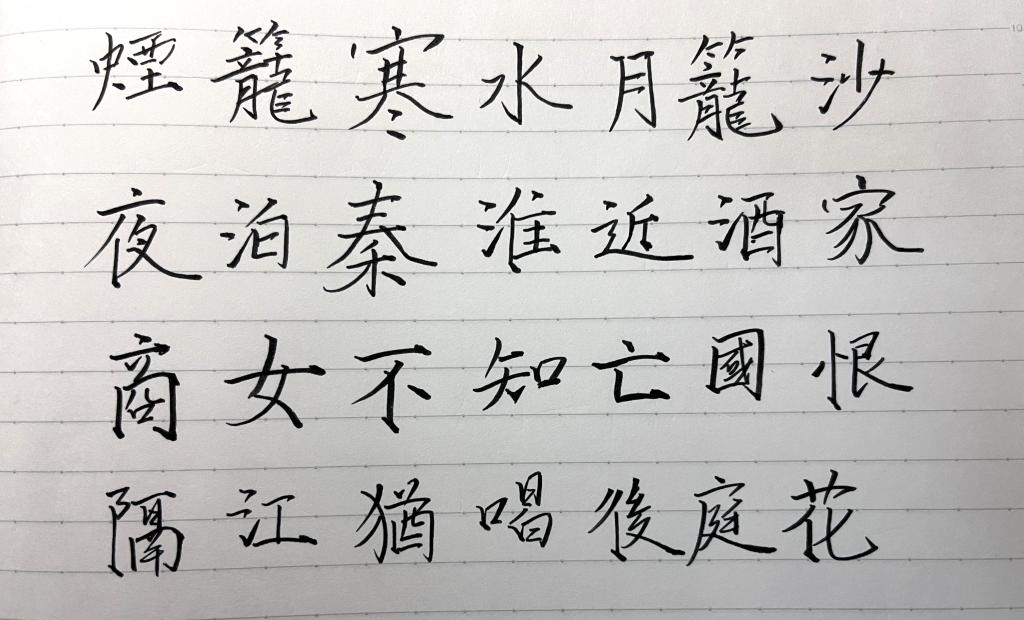 煙籠寒水月籠沙
夜泊秦淮近酒家
商女不知亡國恨
隔江猶唱後庭花